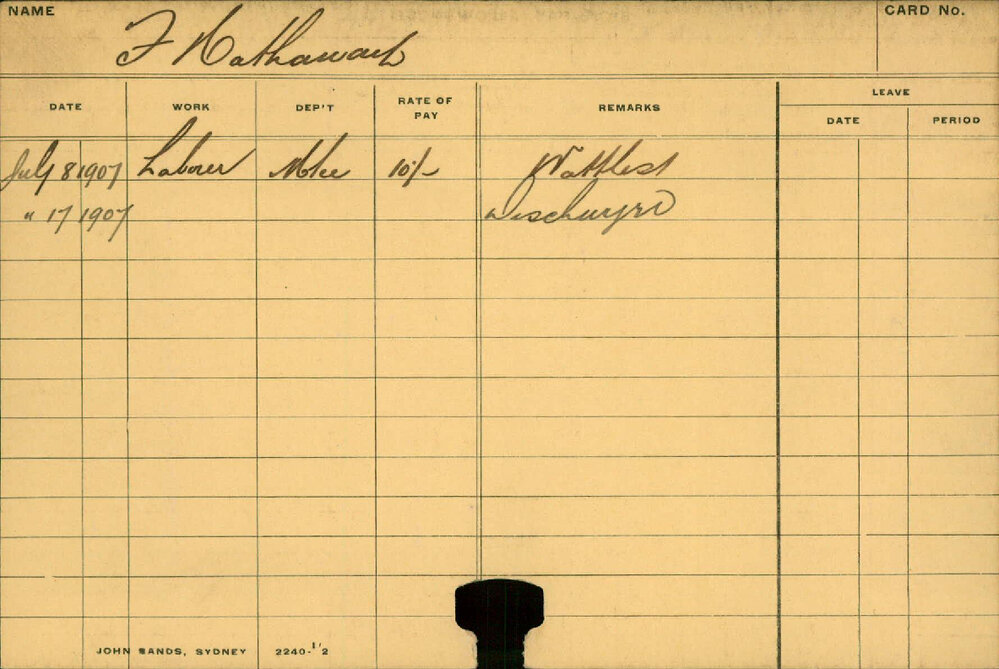 NAME F Hathaway CARD No.
LEAVE
DATE WORK DEP'T RATE OF PAY REMARKS DATE PERIOD
July 8 1907 Laborer 10/-
" 17 1907
JOHN SANDS, SYDNEY 2240-1'2